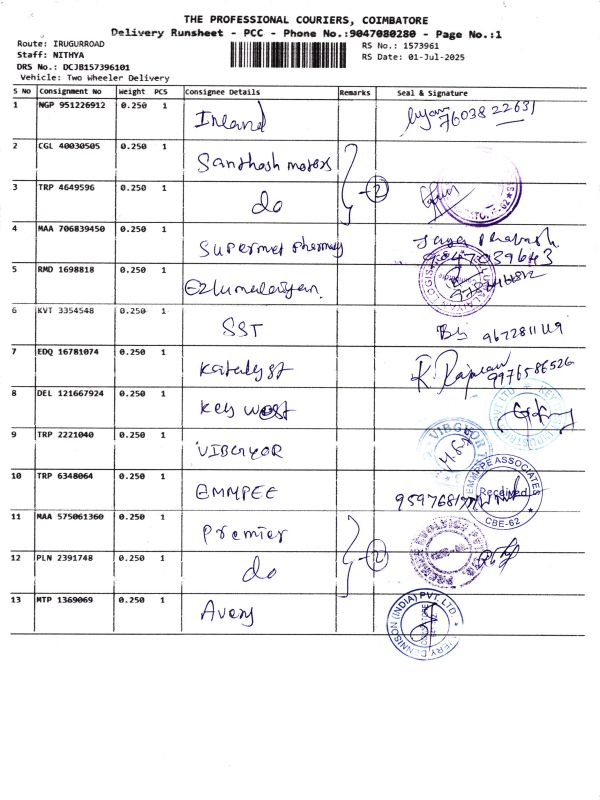 THE PROFESSIONAL COURIERS, COIMBATORE
Delivery Runsheet - PCC - Phone No.:9047080280 - Page No.:1
Route: IRUGURROAD
Staff: NITHYA
DRS No.: DCJB157396101
Vehicle: Two Wheeler Delivery
RS No.: 1573961
RS Date: 01-Jul-2025
S No Consignment No Weight PCS Consignee Details Remarks Seal & Signature
1 NGP 951226912 0.250 1 Inland 76038 22631
2 CGL 40030505 0.250 1 Santhosh motors
3 TRP 4649596 0.250 1 do 2
4 MAA 706839450 0.250 1 Supermet pharmacy
5 RMD 1698818 0.250 1 Ezhumalaiyan
6 KVT 3354548 0.250 1 SST
7 EDQ 16781074 0.250 1 Katalyst 9976586526
8 DEL 121667924 0.250 1 Key west
9 TRP 2221040 0.250 1 VIBGYOR VIBGYOR
10 TRP 6348064 0.250 1 EMMPEE EMMPPE ASSOCIATES Received CBE-62
11 MAA 575061360 0.250 1 Premier
12 PLN 2391748 0.250 1 do 2
13 MTP 1369069 0.250 1 Avery AVERY DENNISON (INDIA) PVT. LTD.